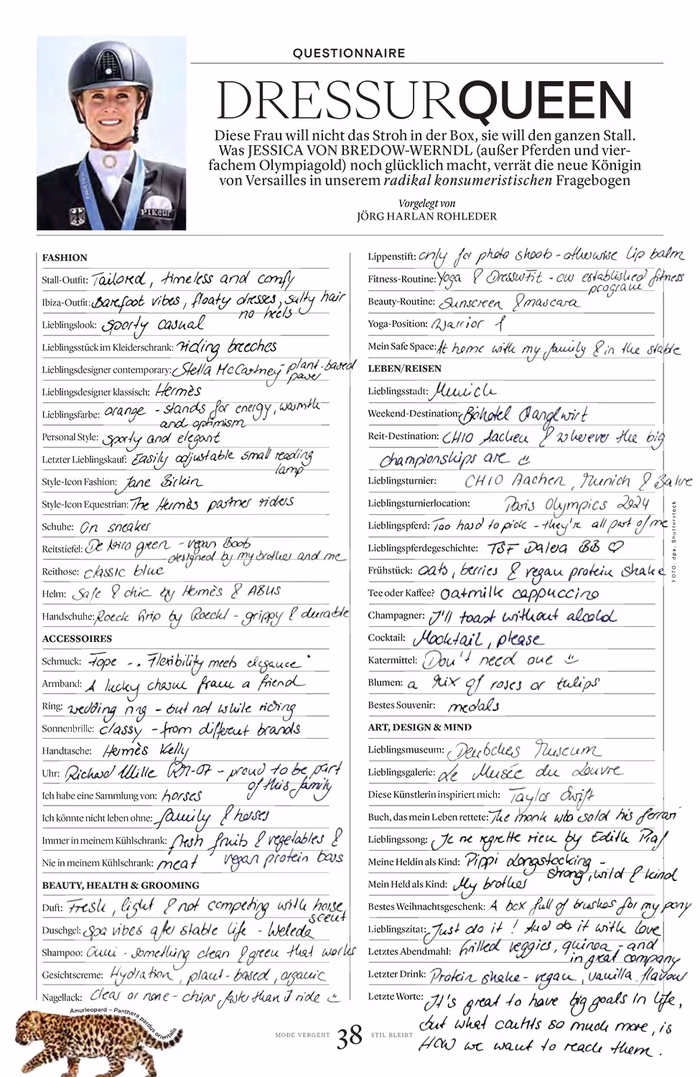 QUESTIONNAIRE
DRESSURQUEEN
Diese Frau will nicht das Stroh in der Box, sie will den ganzen Stall.
Was JESSICA VON BREDOW-WERNDL (außer Pferden und vier-
fachem Olympiagold) noch glücklich macht, verrät die neue Königin
von Versailles in unserem radikal konsumeristischen Fragebogen
Vorgelegt von
JÖRG HARLAN ROHLEDER
PIKEUR
FASHION
Stall-Outfit: Tailored, timeless and comfy
Ibiza-Outfit: Barefoot vibes, floaty dresses, salty hair
no heels
Lieblingslook: sporty casual
Lieblingsstück im Kleiderschrank: riding breeches
Lieblingsdesigner contemporary: Stella McCartney - plant-based
power
Lieblingsdesigner klassisch: Hermès
Lieblingsfarbe: orange - stands for energy, warmth
and optimism
Personal Style: sporty and elegant
Letzter Lieblingskauf: Easily adjustable small reading
lamp
Style-Icon Fashion: Jane Birkin
Style-Icon Equestrian: The Hermès partner riders
Schuhe: On sneaker
Reitstiefel: De Niro green - vegan Boots
designed by my brother and me
Reithose: classic blue
Helm: Safe & chic by Hermès & ABUS
Handschuhe: Roeck Grip by Roeckl - grippy & durable
ACCESSOIRES
Schmuck: Fope - . . Flexibility meets elegance"
Armband: A lucky charm from a friend
Ring: wedding ring - but not while riding
Sonnenbrille: classy - from different brands
Handtasche: Hermès Kelly
Uhr: Richard Mille RM-07 - proud to be part
of this family
Ich habe eine Sammlung von: horses
Ich könnte nicht leben ohne: family & horses
Immer in meinem Kühlschrank: fresh fruits & vegetables &
vegan protein bars
Nie in meinem Kühlschrank: meat
BEAUTY, HEALTH & GROOMING
Duft: Fresh, light & not competing with horse
scent
Duschgel: Spa vibes after stable life - Weleda
Shampoo: - something clean & green that works
Gesichtscreme: Hydration, plant-based, organic
Nagellack: Clear or none - chips faster than I ride
Lippenstift: only for photo shoots - otherwise lip balm
Fitness-Routine: Yoga & DressurFit - our established fitness
program
Beauty-Routine: Sunscreen & mascara
Yoga-Position: Warrior 1
Mein Safe Space: At home with my family & in the stable
LEBEN/REISEN
Lieblingsstadt: Munich
Weekend-Destination: Biohotel Stanglwirt
Reit-Destination: CHIO Aachen & wherever the big
championships are
Lieblingsturnier: CHIO Aachen, Munich &
Lieblingsturnierlocation: Paris Olympics 2024
Lieblingspferd: Too hard to pick - they're all part of me
Lieblingspferdegeschichte: TSF Dalera BB ♡
Frühstück: oats, berries & vegan protein shake
Tee oder Kaffee? Oatmilk cappuccino
Champagner: I'll toast without alcohol
Cocktail: Mocktail, please
Katermittel: Don't need one
Blumen: a mix of roses or tulips
Bestes Souvenir: medals
ART, DESIGN & MIND
Lieblingsmuseum: Deutsches Museum
Lieblingsgalerie: Le Musée du Louvre
Diese Künstlerin inspiriert mich: Taylor Swift
Buch, das mein Leben rettete: The monk who sold his ferrari
Lieblingssong: Je ne regrette rien by Edith Piaf
Meine Heldin als Kind: Pippi Longstocking -
strong, wild & kind
Mein Held als Kind: My brother
Bestes Weihnachtsgeschenk: A box full of brushes for my pony
Lieblingszitat: Just do it! And do it with love
Letztes Abendmahl: Grilled veggies, quinoa - and
in great company
Letzter Drink: Protein shake - vegan, vanilla flavour
Letzte Worte: It's great to have big goals in life,
but what counts so much more, is
HOW we want to reach them.
FOTO: dpa, Shutterstock
Amurleopard – Panthera pardus orientalis
MODE VERGEHT 38 STIL BLEIBT